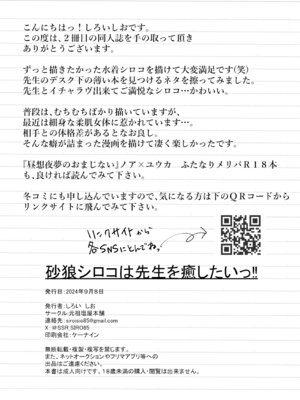 こんにちは！しろいしおです。
この度は、２冊目の同人誌を手の取って頂き
ありがとうございます。
ずっと描きたかった水着シロコを描けて大変満足です(笑)
先生のデスク下の薄い本を見つけるネタを擦ってみました。
先生とイチャラヴ出来てご満悦なシロコ…かわいい。
普段は、むちむちばかり描いていますが、
最近は細身な柔肌女体に惹かれています…。
相手との体格差があるとなお良し。
そんな癖が詰まった漫画を描けて凄く楽しかったです。
『昼想夜夢のおまじない』ノア×ユウカ　ふたなりメリバR１８本
も、良ければ読んでみて下さい。
冬コミにも申し込んでいますので、気になる方は下のQRコードから
リンクサイトに飛んでみて下さい。
リンクサイトから
各SNSにとんでね。
砂狼シロコは先生を癒したいっ!!
発行日：2024年9月8日
発行者：しろい しお
サークル:元祖塩屋本舗
連絡先：siroisio85@gmail.com
X：@SSR_SIRO85
印刷会社：ケーナイン
無断転載・複製・複写を禁じます。
また、ネットオークションやフリマアプリ等への
出品はご遠慮ください。
本書は成人向けです。１８歳未満の購入・閲覧は出来ません。